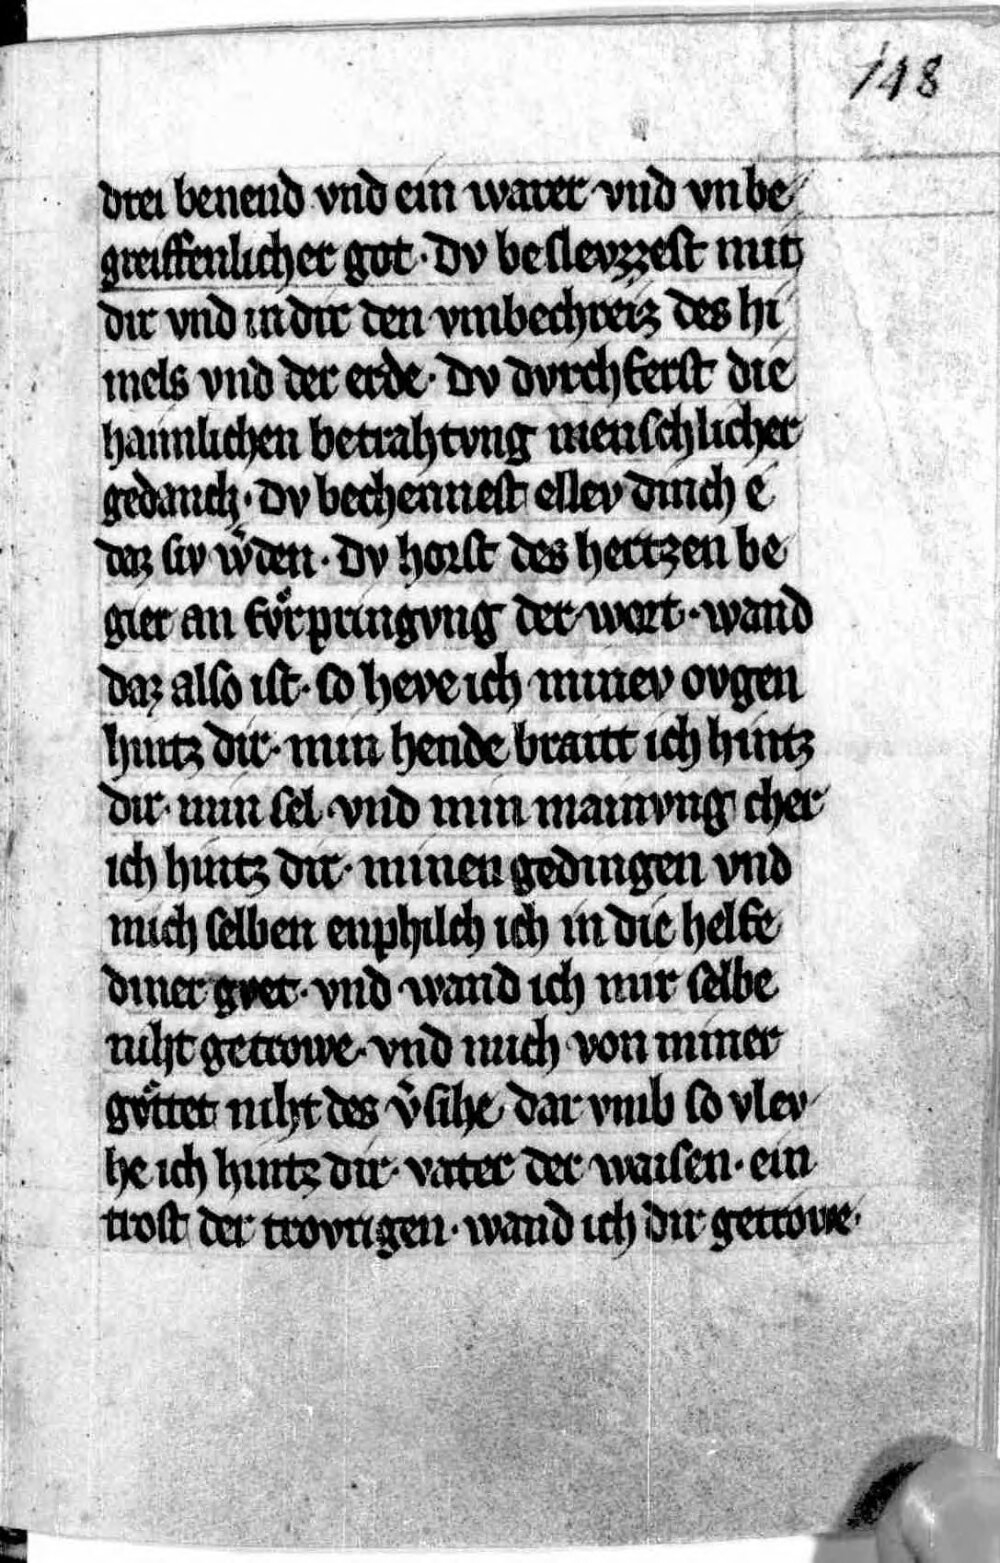 148
drei benend vnd ein warer vnd vnbe
greiffenlicher got · Dv beslevzzest mit
dir vnd in dir den vmbechreiz des hi
mels vnd der erde · Dv dvrchferst die
haimlichen betrahtvng menschlicher
gedanch · Dv bechennest ellev dinch e
daz siv w̄den · Dv horst des hertzen be
gier an fv̊rpringvng der wort · wand
daz also ist · so heve ich minev ovgen
hintz dir · min hende braitt ich hintz
dir · min sel · vnd min mainvng cher
ich hintz dir · minen gedingen vnd
mich selben enphilch ich in die helfe
diner gvet · vnd wand ich mir selbe
niht getrowe · vnd mich von miner
gv̊ttet niht des v̄sihe · dar vmb so vlev
he ich hintz dir · vater der waisen · ein
trost der trovrigen · wand ich dir getrowe ·